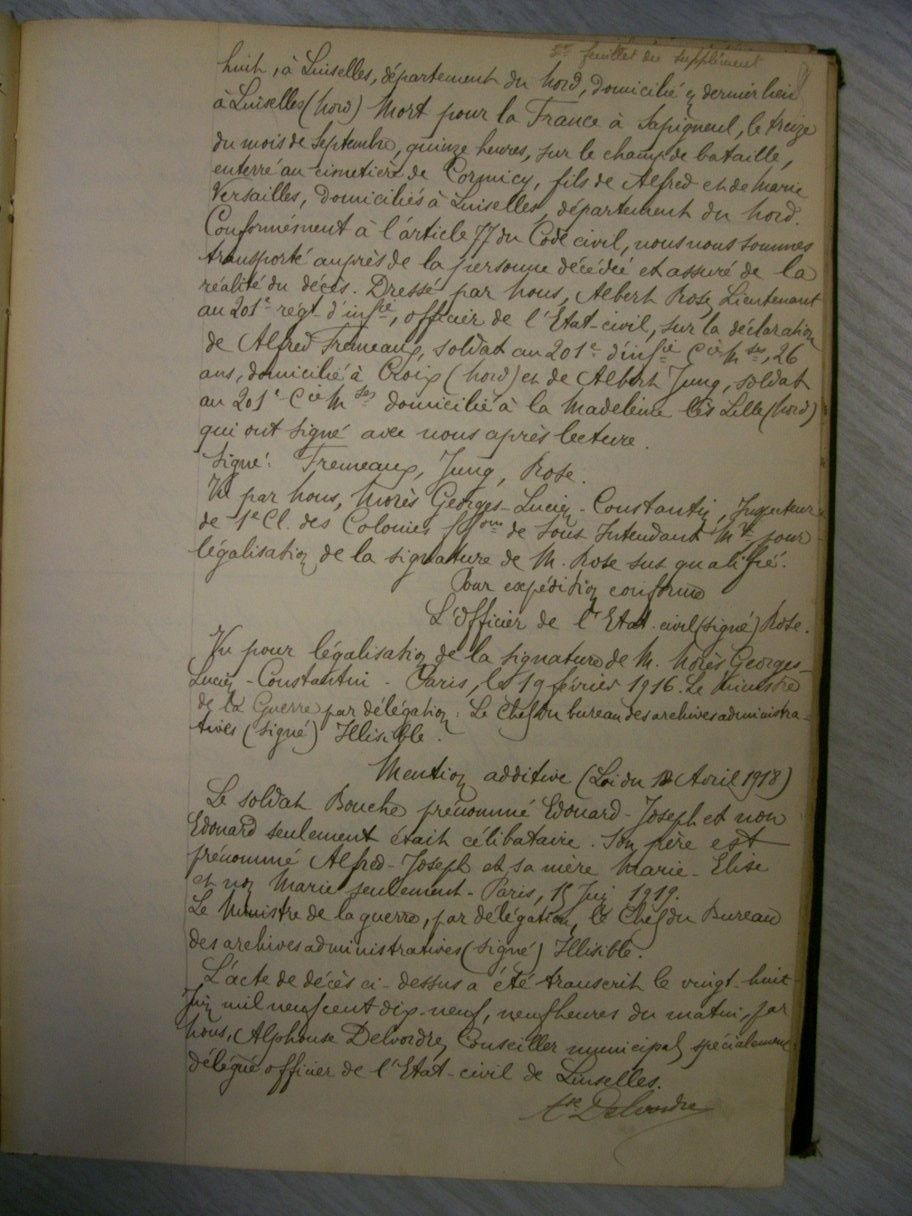 feuillet du supplément
huit, à Linselles, département du Nord, domicilié en dernier lieu
à Linselles (Nord) Mort pour la France à Sapigneul, le treize
du mois de Septembre, quinze heures, sur le champ de bataille,
enterré au cimetière de Cormicy, fils de Alfred et de Marie
Versailles, domiciliés à Linselles, département du Nord.
Conformément à l'article 77 du Code civil, nous nous sommes
transporté auprès de la personne décédée et assuré de la
réalité du décès. Dressé par Nous, Albert Rose, Lieutenant
au 201e régt d'infie, officier de l'Etat-civil, sur la déclaration
de Alfred Fremeaux, soldat au 201e d'infie Cie Mses, 26
ans, domicilié à Croix (Nord) et de Albert Jung, soldat
au 201e Cie Mses domicilié à la Madeleine lès Lille (Nord)
qui ont signé avec nous après lecture.
Signé: Fremeaux, Jung, Rose.
Vu par Nous, Norès Georges-Lucien-Constantin, Inspecteur
de 1e Cl. des Colonies ffons de Sous Intendant Mre pour
légalisation de la signature de M. Rose sus qualifié.
Pour expédition conforme
L'Officier de l'Etat-civil (signé) Rose.
Vu pour légalisation de la signature de M. Norès Georges-
Lucien-Constantin - Paris, le 19 février 1916. Le Ministre
de la Guerre par délégation: Le Chef du bureau des archives administra-
tives (signé) Illisible.
Mention additive (Loi du 18 Avril 1918)
Le soldat Bouche prénommé Edouard-Joseph et non
Edouard seulement était célibataire. Son père est
prénommé Alfred-Joseph et sa mère Marie-Elise
et non Marie seulement - Paris, 15 Juin 1919.
Le Ministre de la guerre, par délégation, le Chef du Bureau
des archives administratives (signé) Illisible.
L'acte de décès ci-dessus a été transcrit le vingt-huit
Juin mil neuf cent dix-neuf, neuf heures du matin, par
Nous, Alphonse Delvoidre, Conseiller municipal spécialement
délégué officier de l'Etat-civil de Linselles.
Ase Delvoidre